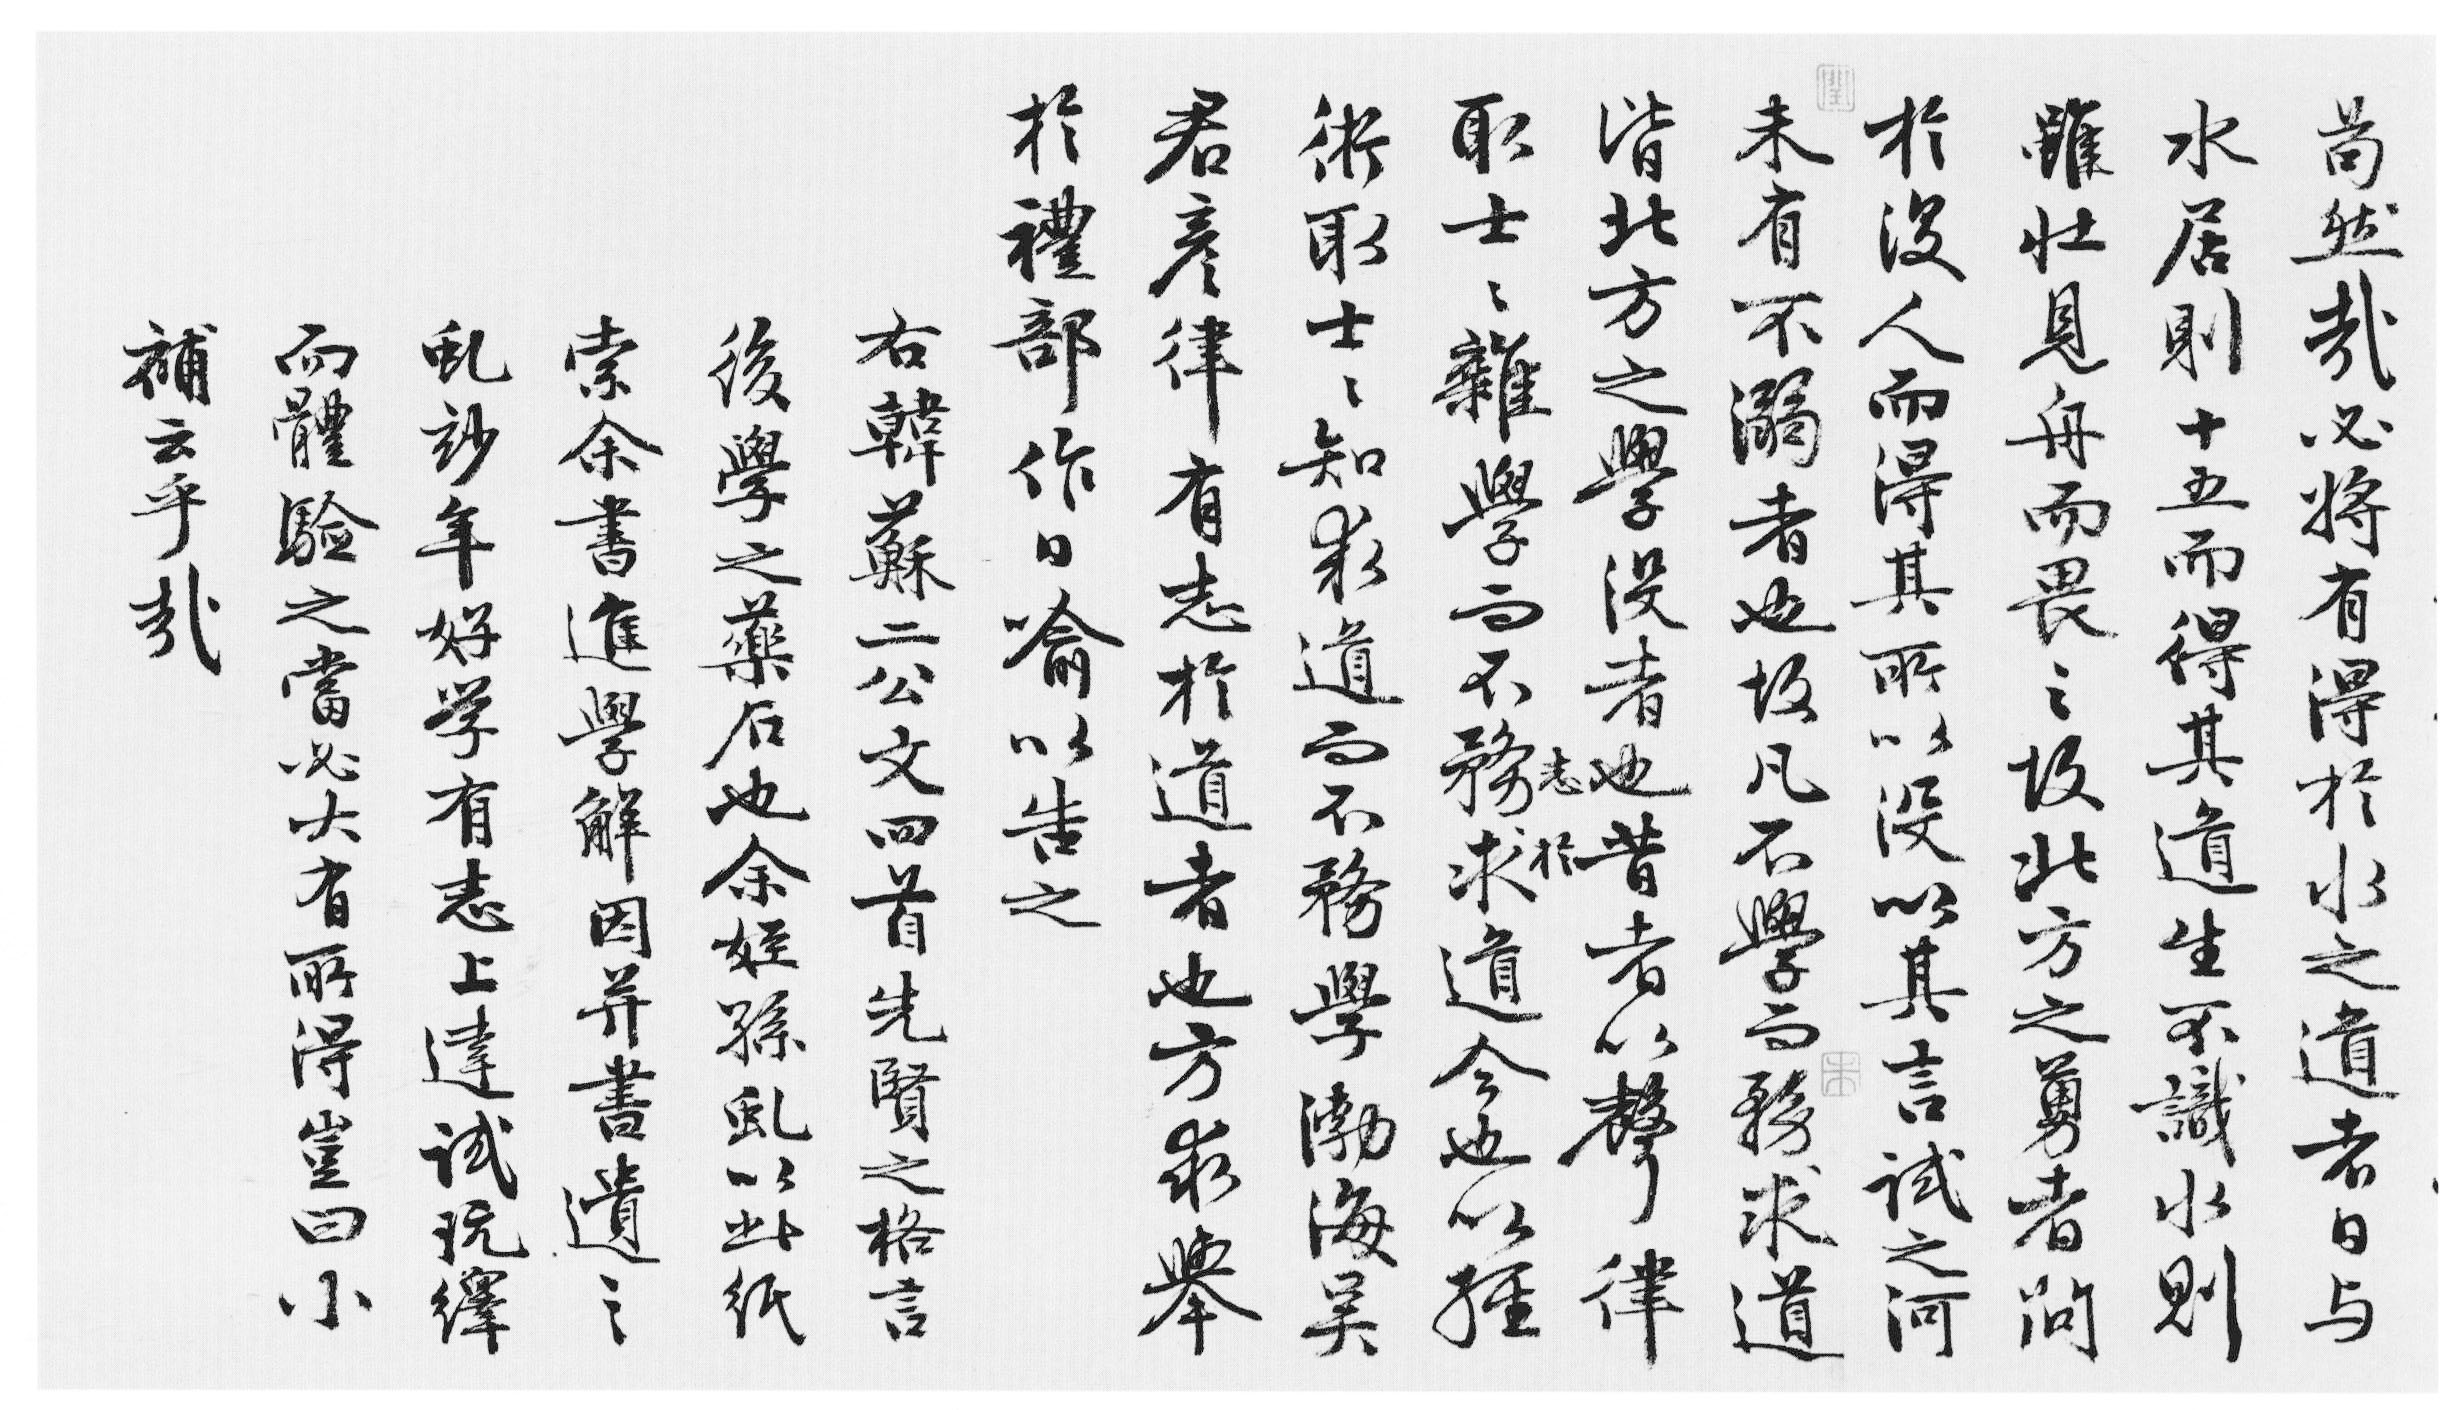 苟然哉必將有得於水之道者日与
水居則十五而得其道生不識水則
雖壯見舟而畏之故北方之勇者問
於没人而得其所以没以其言試之河
未有不溺者也故凡不學而務求道
皆北方之學没者也昔者以聲律
取士士雜學而不務求道今也以經
志於
術取士士知求道而不務學渤海吴
君彦律有志於道者也方求舉
於禮部作日喻以告之
右韓蘇二公文四首先賢之格言
後學之藥石也余姪孫虬以此紙
索余書進學解因并書遺之
虬玅年好学有志上達試玩繹
而體驗之當必大有所得豈曰小
補云乎哉